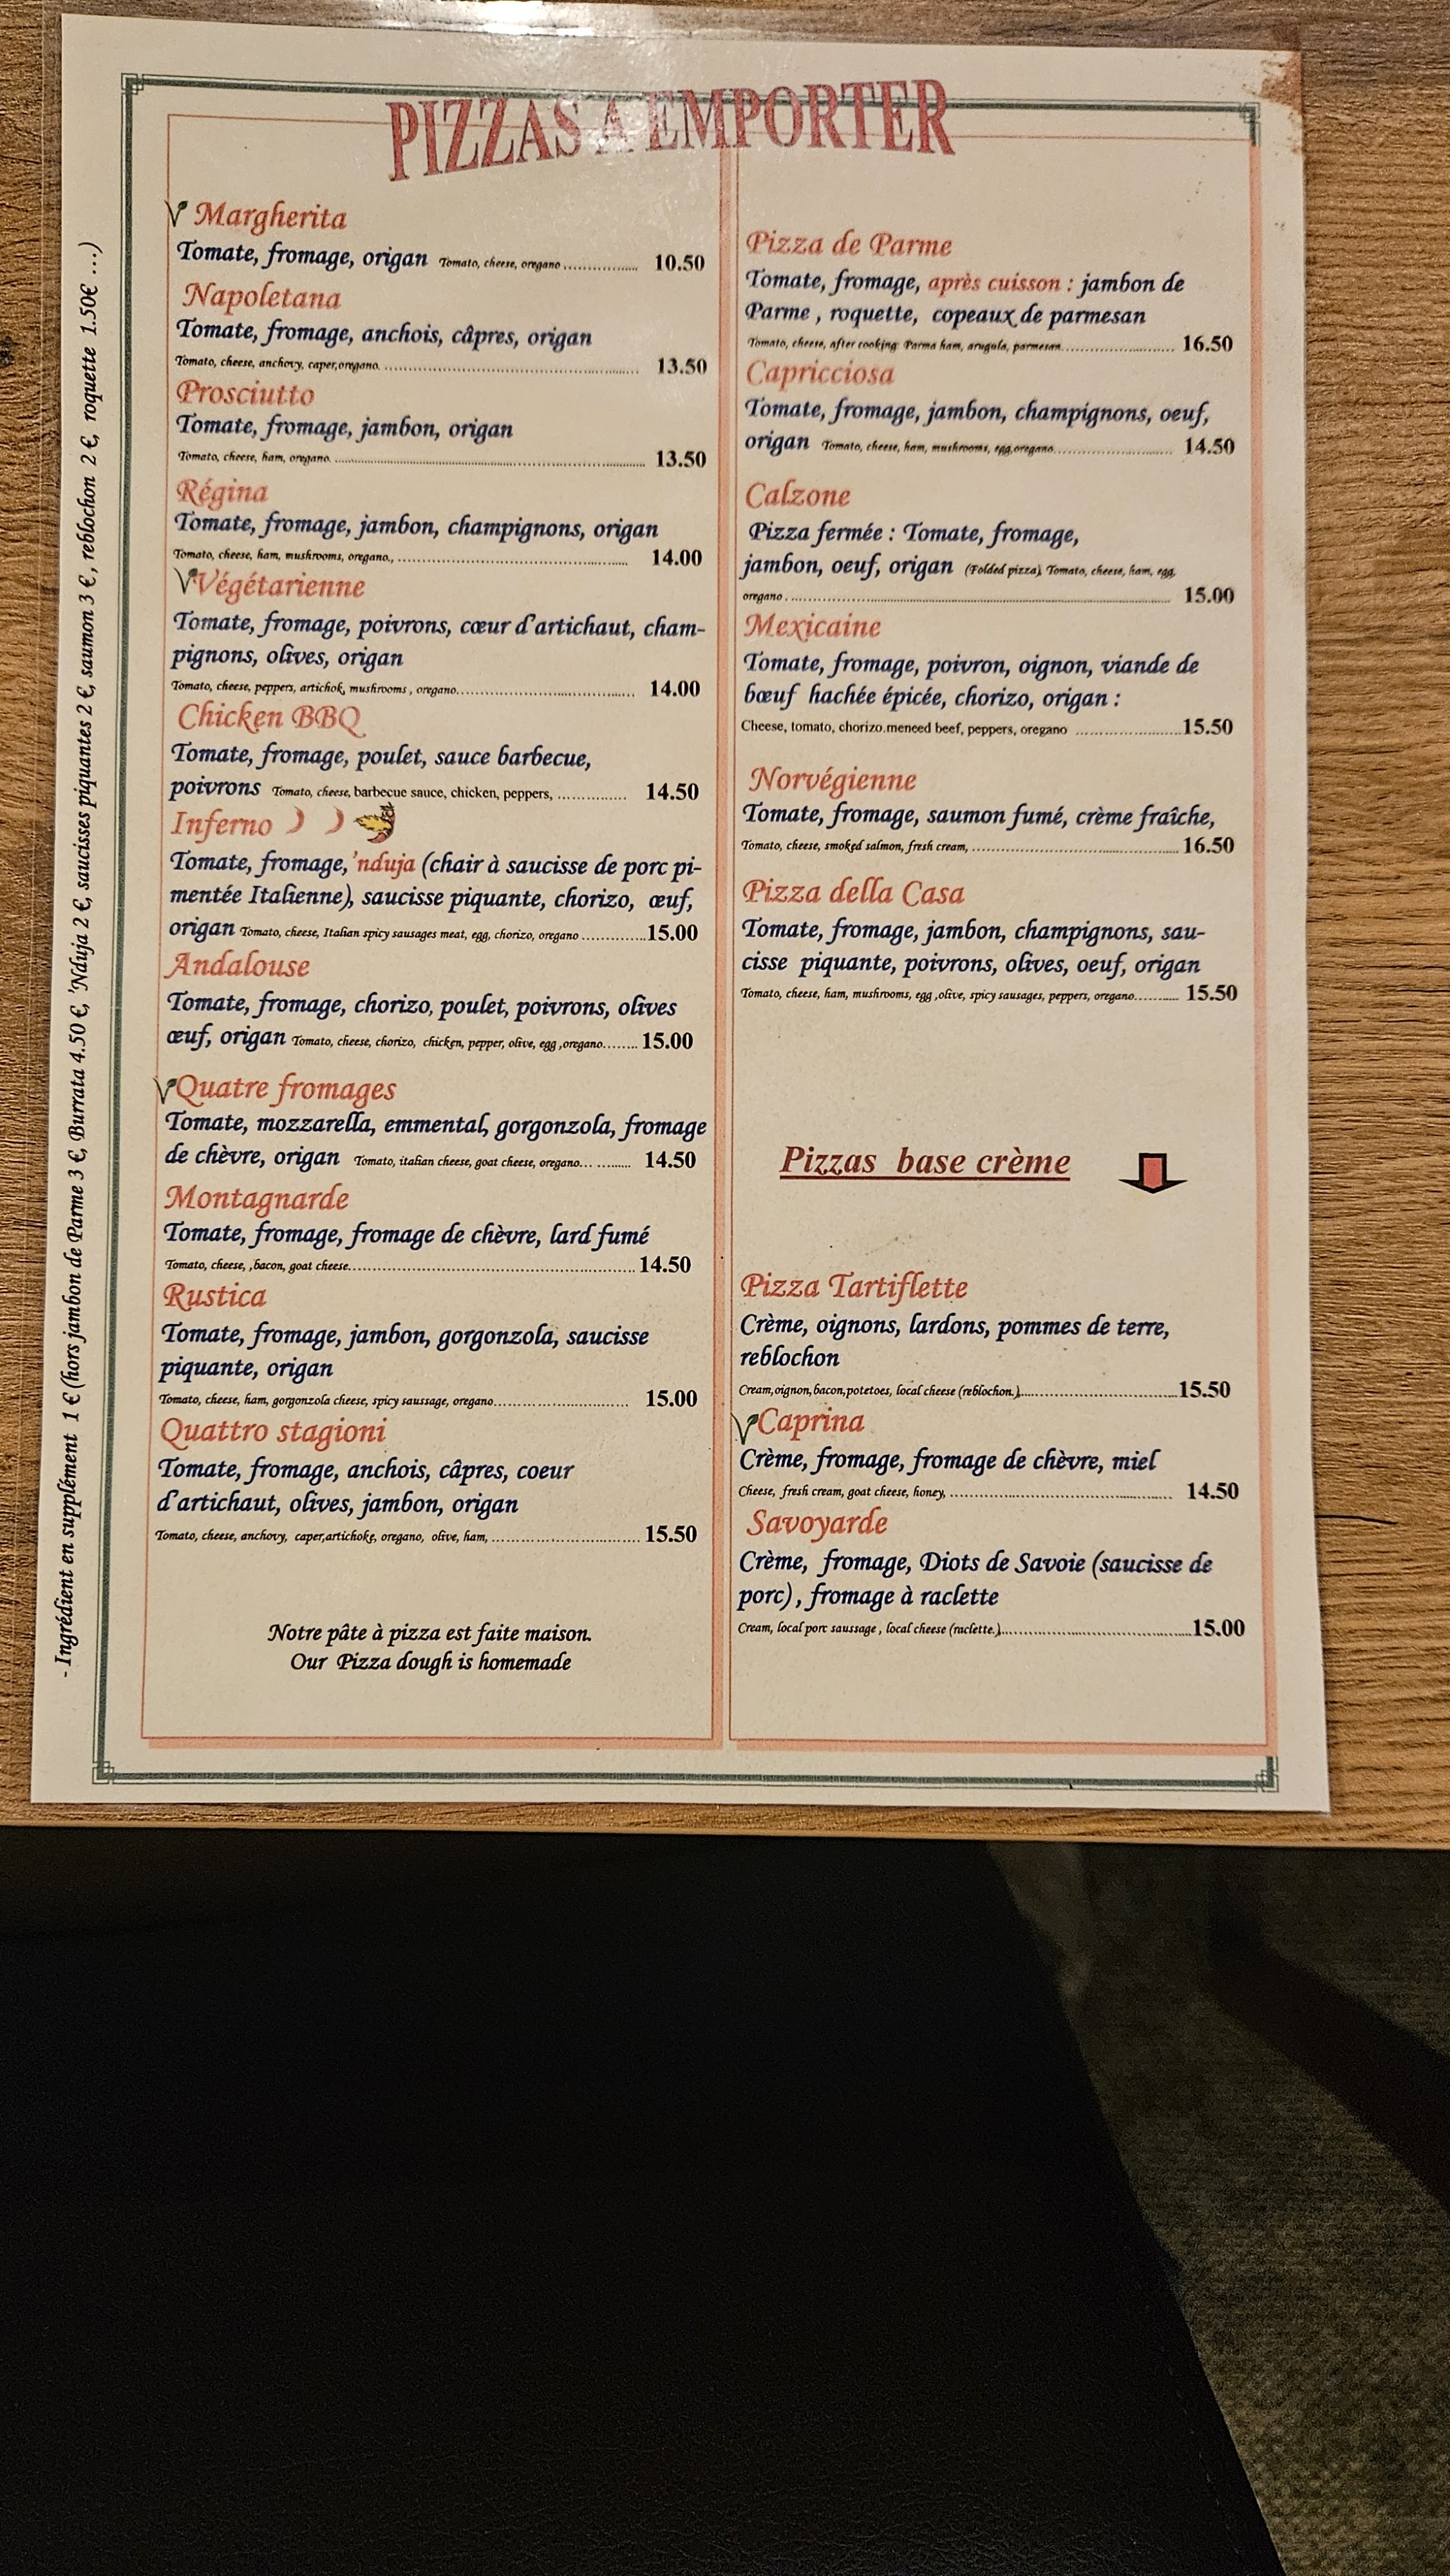 PIZZAS A EMPORTER
Margherita
Tomate, fromage, origan Tomato, cheese, oregano .................. 10.50
Napoletana
Tomate, fromage, anchois, câpres, origan
Tomato, cheese, anchovy, caper,oregano. .................. 13.50
Prosciutto
Tomate, fromage, jambon, origan
Tomato, cheese, ham, oregano. .................. 13.50
Régina
Tomate, fromage, jambon, champignons, origan
Tomato, cheese, ham, mushrooms, oregano., .................. 14.00
Végétarienne
Tomate, fromage, poivrons, cœur d'artichaut, cham-
pignons, olives, origan
Tomato, cheese, peppers, artichok, mushrooms , oregano.................. 14.00
Chicken BBQ
Tomate, fromage, poulet, sauce barbecue,
poivrons Tomato, cheese, barbecue sauce, chicken, peppers, ............... 14.50
Inferno
Tomate, fromage,'nduja (chair à saucisse de porc pi-
mentée Italienne), saucisse piquante, chorizo, œuf,
origan Tomato, cheese, Italian spicy sausages meat, egg, chorizo, oregano ..............15.00
Andalouse
Tomate, fromage, chorizo, poulet, poivrons, olives
œuf, origan Tomato, cheese, chorizo, chicken, pepper, olive, egg ,oregano........ 15.00
Quatre fromages
Tomate, mozzarella, emmental, gorgonzola, fromage
de chèvre, origan Tomato, italian cheese, goat cheese, oregano... ........ 14.50
Montagnarde
Tomate, fromage, fromage de chèvre, lard fumé
Tomato, cheese, ,bacon, goat cheese.................. 14.50
Rustica
Tomate, fromage, jambon, gorgonzola, saucisse
piquante, origan
Tomato, cheese, ham, gorgonzola cheese, spicy saussage, oregano.................. 15.00
Quattro stagioni
Tomate, fromage, anchois, câpres, coeur
d'artichaut, olives, jambon, origan
Tomato, cheese, anchovy, caper,artichoke, oregano, olive, ham, .................. 15.50
Notre pâte à pizza est faite maison.
Our Pizza dough is homemade
Pizza de Parme
Tomate, fromage, après cuisson : jambon de
Parme , roquette, copeaux de parmesan
Tomato, cheese, after cooking: Parma ham, arugula, parmesan.................. 16.50
Capricciosa
Tomate, fromage, jambon, champignons, oeuf,
origan Tomato, cheese, ham, mushrooms, egg,oregano.................. 14.50
Calzone
Pizza fermée : Tomate, fromage,
jambon, oeuf, origan (Folded pizza), Tomato, cheese, ham, egg,
oregano .................. 15.00
Mexicaine
Tomate, fromage, poivron, oignon, viande de
bœuf hachée épicée, chorizo, origan :
Cheese, tomato, chorizo.menced beef, peppers, oregano ..................15.50
Norvégienne
Tomate, fromage, saumon fumé, crème fraîche,
Tomato, cheese, smoked salmon, fresh cream, .................. 16.50
Pizza della Casa
Tomate, fromage, jambon, champignons, sau-
cisse piquante, poivrons, olives, oeuf, origan
Tomato, cheese, ham, mushrooms, egg ,olive, spicy sausages, peppers, oregano.......... 15.50
Pizzas base crème
Pizza Tartiflette
Crème, oignons, lardons, pommes de terre,
reblochon
Cream,oignon,bacon,potetoes, local cheese (reblochon.)..................15.50
Caprina
Crème, fromage, fromage de chèvre, miel
Cheese, fresh cream, goat cheese, honey, .................. 14.50
Savoyarde
Crème, fromage, Diots de Savoie (saucisse de
porc) , fromage à raclette
Cream, local porc saussage , local cheese (raclette.)..................15.00
- Ingrédient en supplément 1 € (hors jambon de Parme 3 €, Burrata 4.50 €, 'Nduja 2 €, saucisses piquantes 2 €, saumon 3 €, reblochon 2 €, roquette 1.50€ ...)